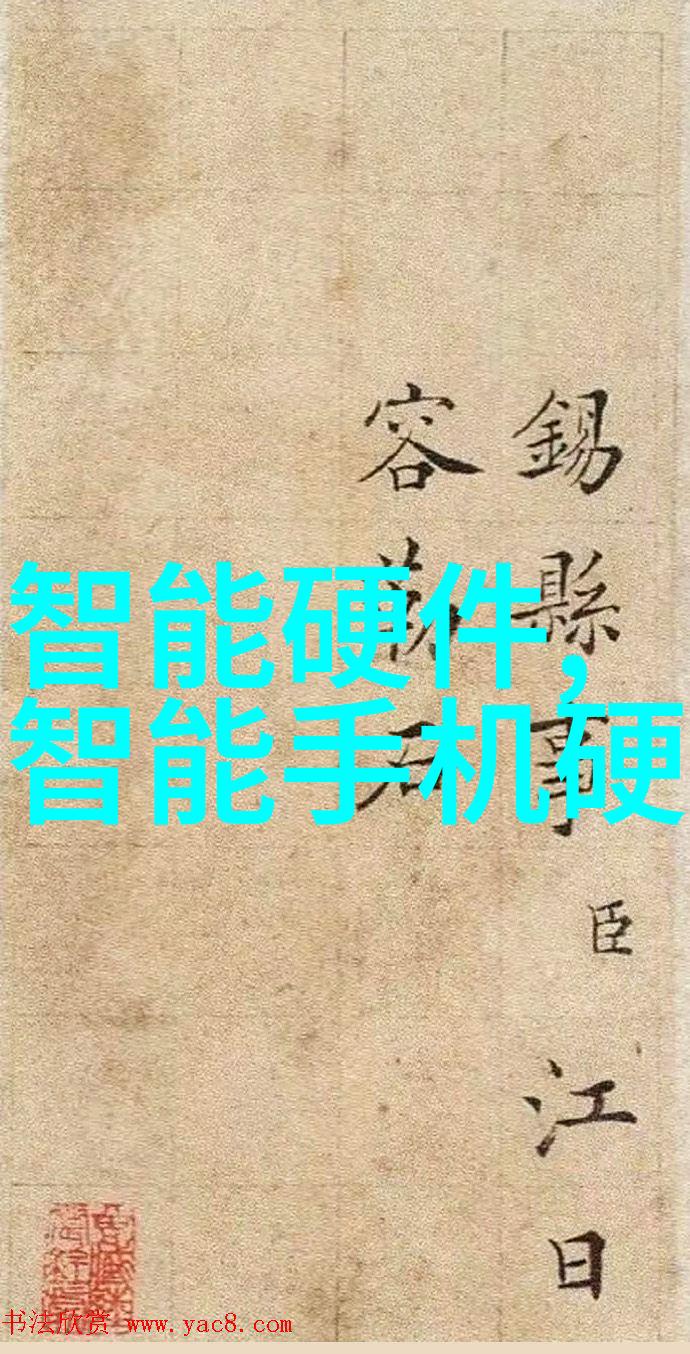 智能硬件,
智能手机硬
錫縣事臣江日
容勒石
书法欣赏 www.yac8.com